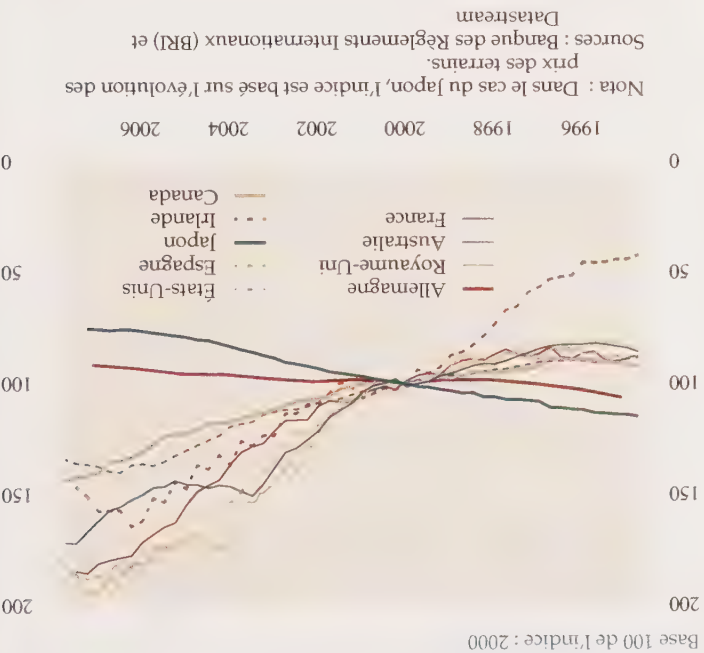 Base 100 de l'indice : 2000
200 200
150 150
100 100
50 50
0 0
Allemagne
Royaume-Uni
Australie
France
États-Unis
Espagne
Japon
Irlande
Canada
1996 1998 2000 2002 2004 2006
Nota : Dans le cas du Japon, l'indice est basé sur l'évolution des
prix des terrains.
Sources : Banque des Règlements Internationaux (BRI) et
Datastream